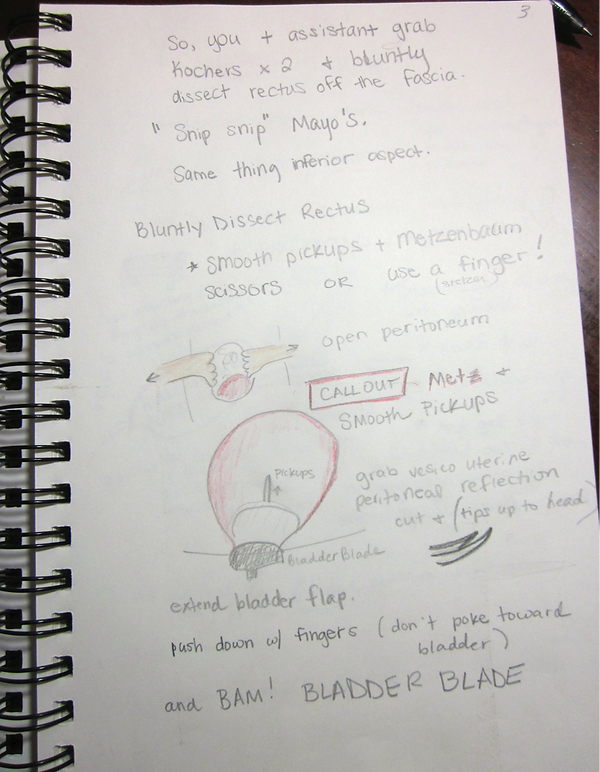 3
So, you + assistant grab
Kochers x 2 + bluntly
dissect rectus off the fascia.
"Snip snip" Mayo's.
Same thing inferior aspect.
Bluntly Dissect Rectus
* smooth pickups + Metzenbaum
scissors OR use a finger!
open peritoneum
CALLOUT Metz +
Smooth Pickups
Pickups
grab vesico uterine
peritoneal reflection
cut + (tips up to head)
Bladder Blade
extend bladder flap.
push down w/ fingers (don't poke toward
bladder)
and BAM! BLADDER BLADE